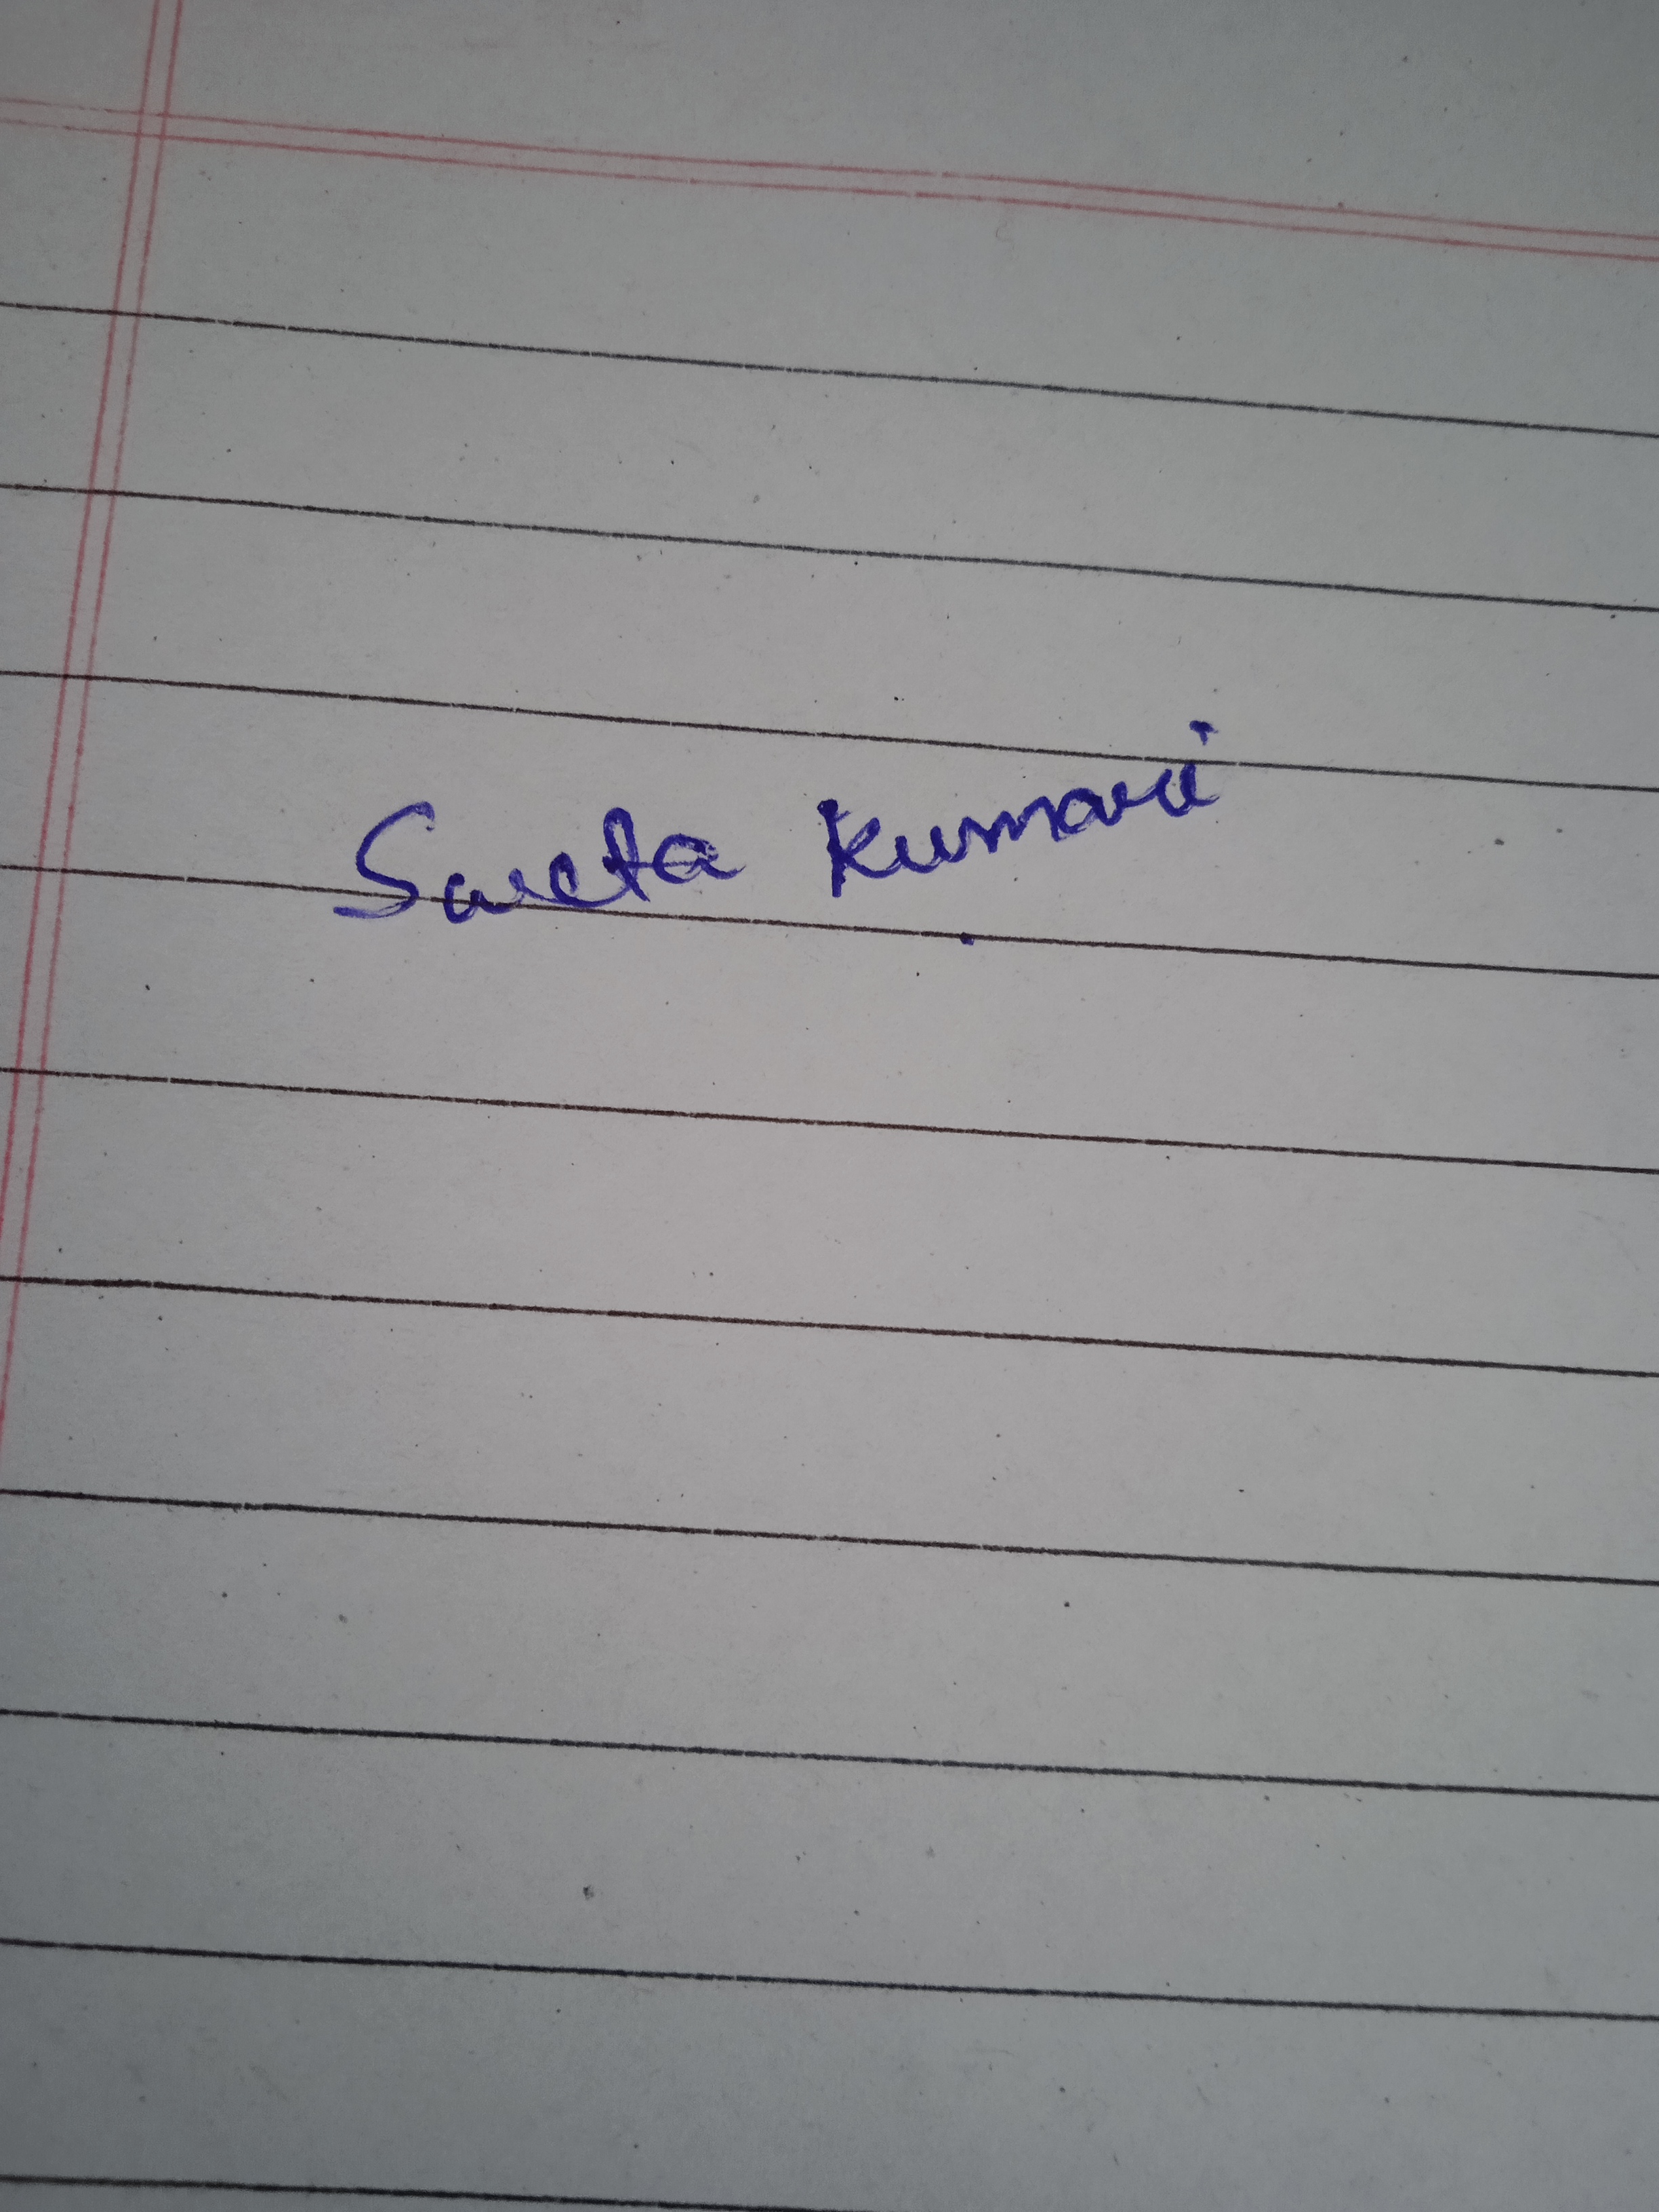 Sweta Kumari